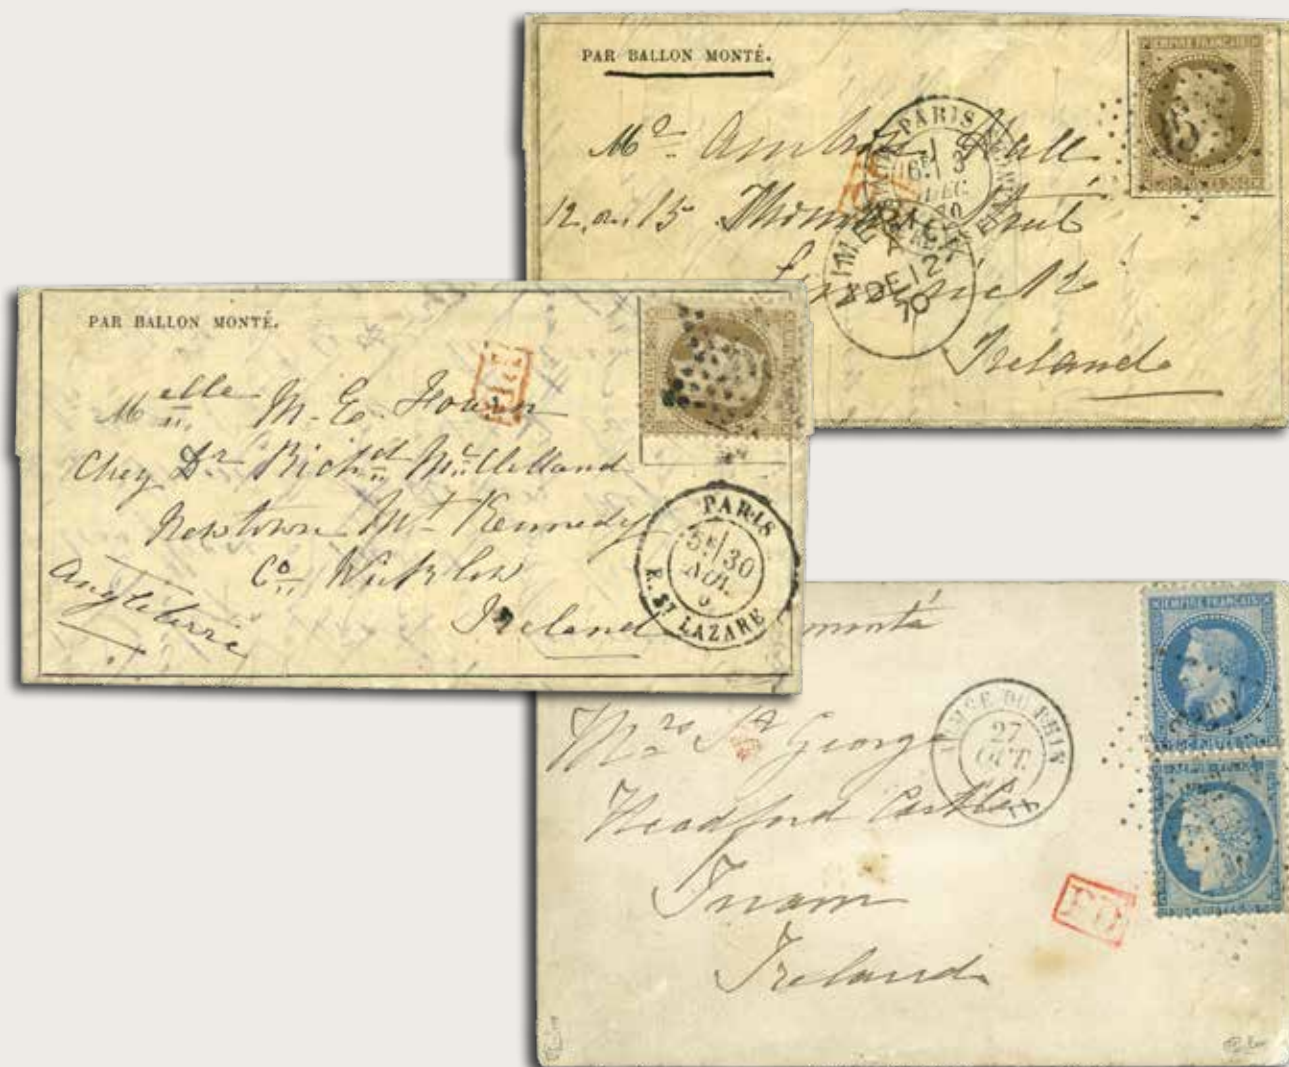 PAR BALLON MONTÉ.
EMPIRE FRANÇAIS
Mr Hall
12 a 15 Thomas
Limerick
Ireland
PARIS
3
DEC.
LIMERICK
A
DE 12
70
PAR BALLON MONTÉ.
Melle M. E.
Chez Dr Richd McClelland
Newtown Mt Kennedy
Co Wicklow
Ireland
Angleterre
PARIS
5E 30
NOV.
R. ST LAZARE
monté
EMPIRE FRANÇAIS
Mrs St George
Headford Castle
Tuam
Ireland
ARMÉE DU RHIN
27
OCT.
P.D.